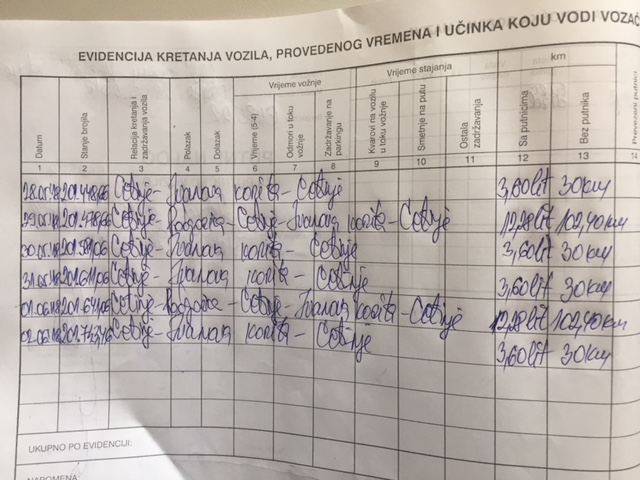 EVIDENCIJA KRETANJA VOZILA, PROVEDENOG VREMENA I UČINKA KOJU VODI VOZAČ
Vrijeme vožnje Vrijeme stajanja km
Datum Stanje brojila Relacija kretanja i zadržavanja vozila Polazak Dolazak Vrijeme (5-4) Odmori u toku vožnje Zadržavanje na parkingu Kvarovi na vozilu u toku vožnje Smetnje na putu Ostala zadržavanja Sa putnicima Bez putnika putnici
1 2 3 4 5 6 7 8 9 10 11 12 13 14
Cetinje - Ivanova korita - Cetinje 3,60 lit 30 km
Cetinje - Podgorica - Cetinje - Ivanova korita - Cetinje 12,28 lit 102,40 km
Cetinje - Ivanova korita - Cetinje 3,60 lit 30 km
Cetinje - Ivanova korita - Cetinje 3,60 lit 30 km
Cetinje - Podgorica - Cetinje - Ivanova korita - Cetinje 12,28 lit 102,40 km
Cetinje - Ivanova korita - Cetinje 3,60 lit 30 km
UKUPNO PO EVIDENCIJI:
NAPOMENA